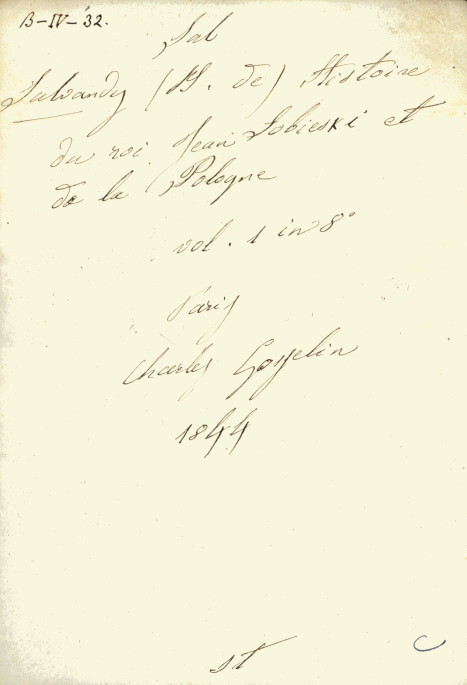 B-IV-'32.
Sal
Salvandy (N. de) Histoire
du roi Jean Sobieski et
de la Pologne
vol. 1 in 8°
Paris
Charles Gosselin
1844
st
C